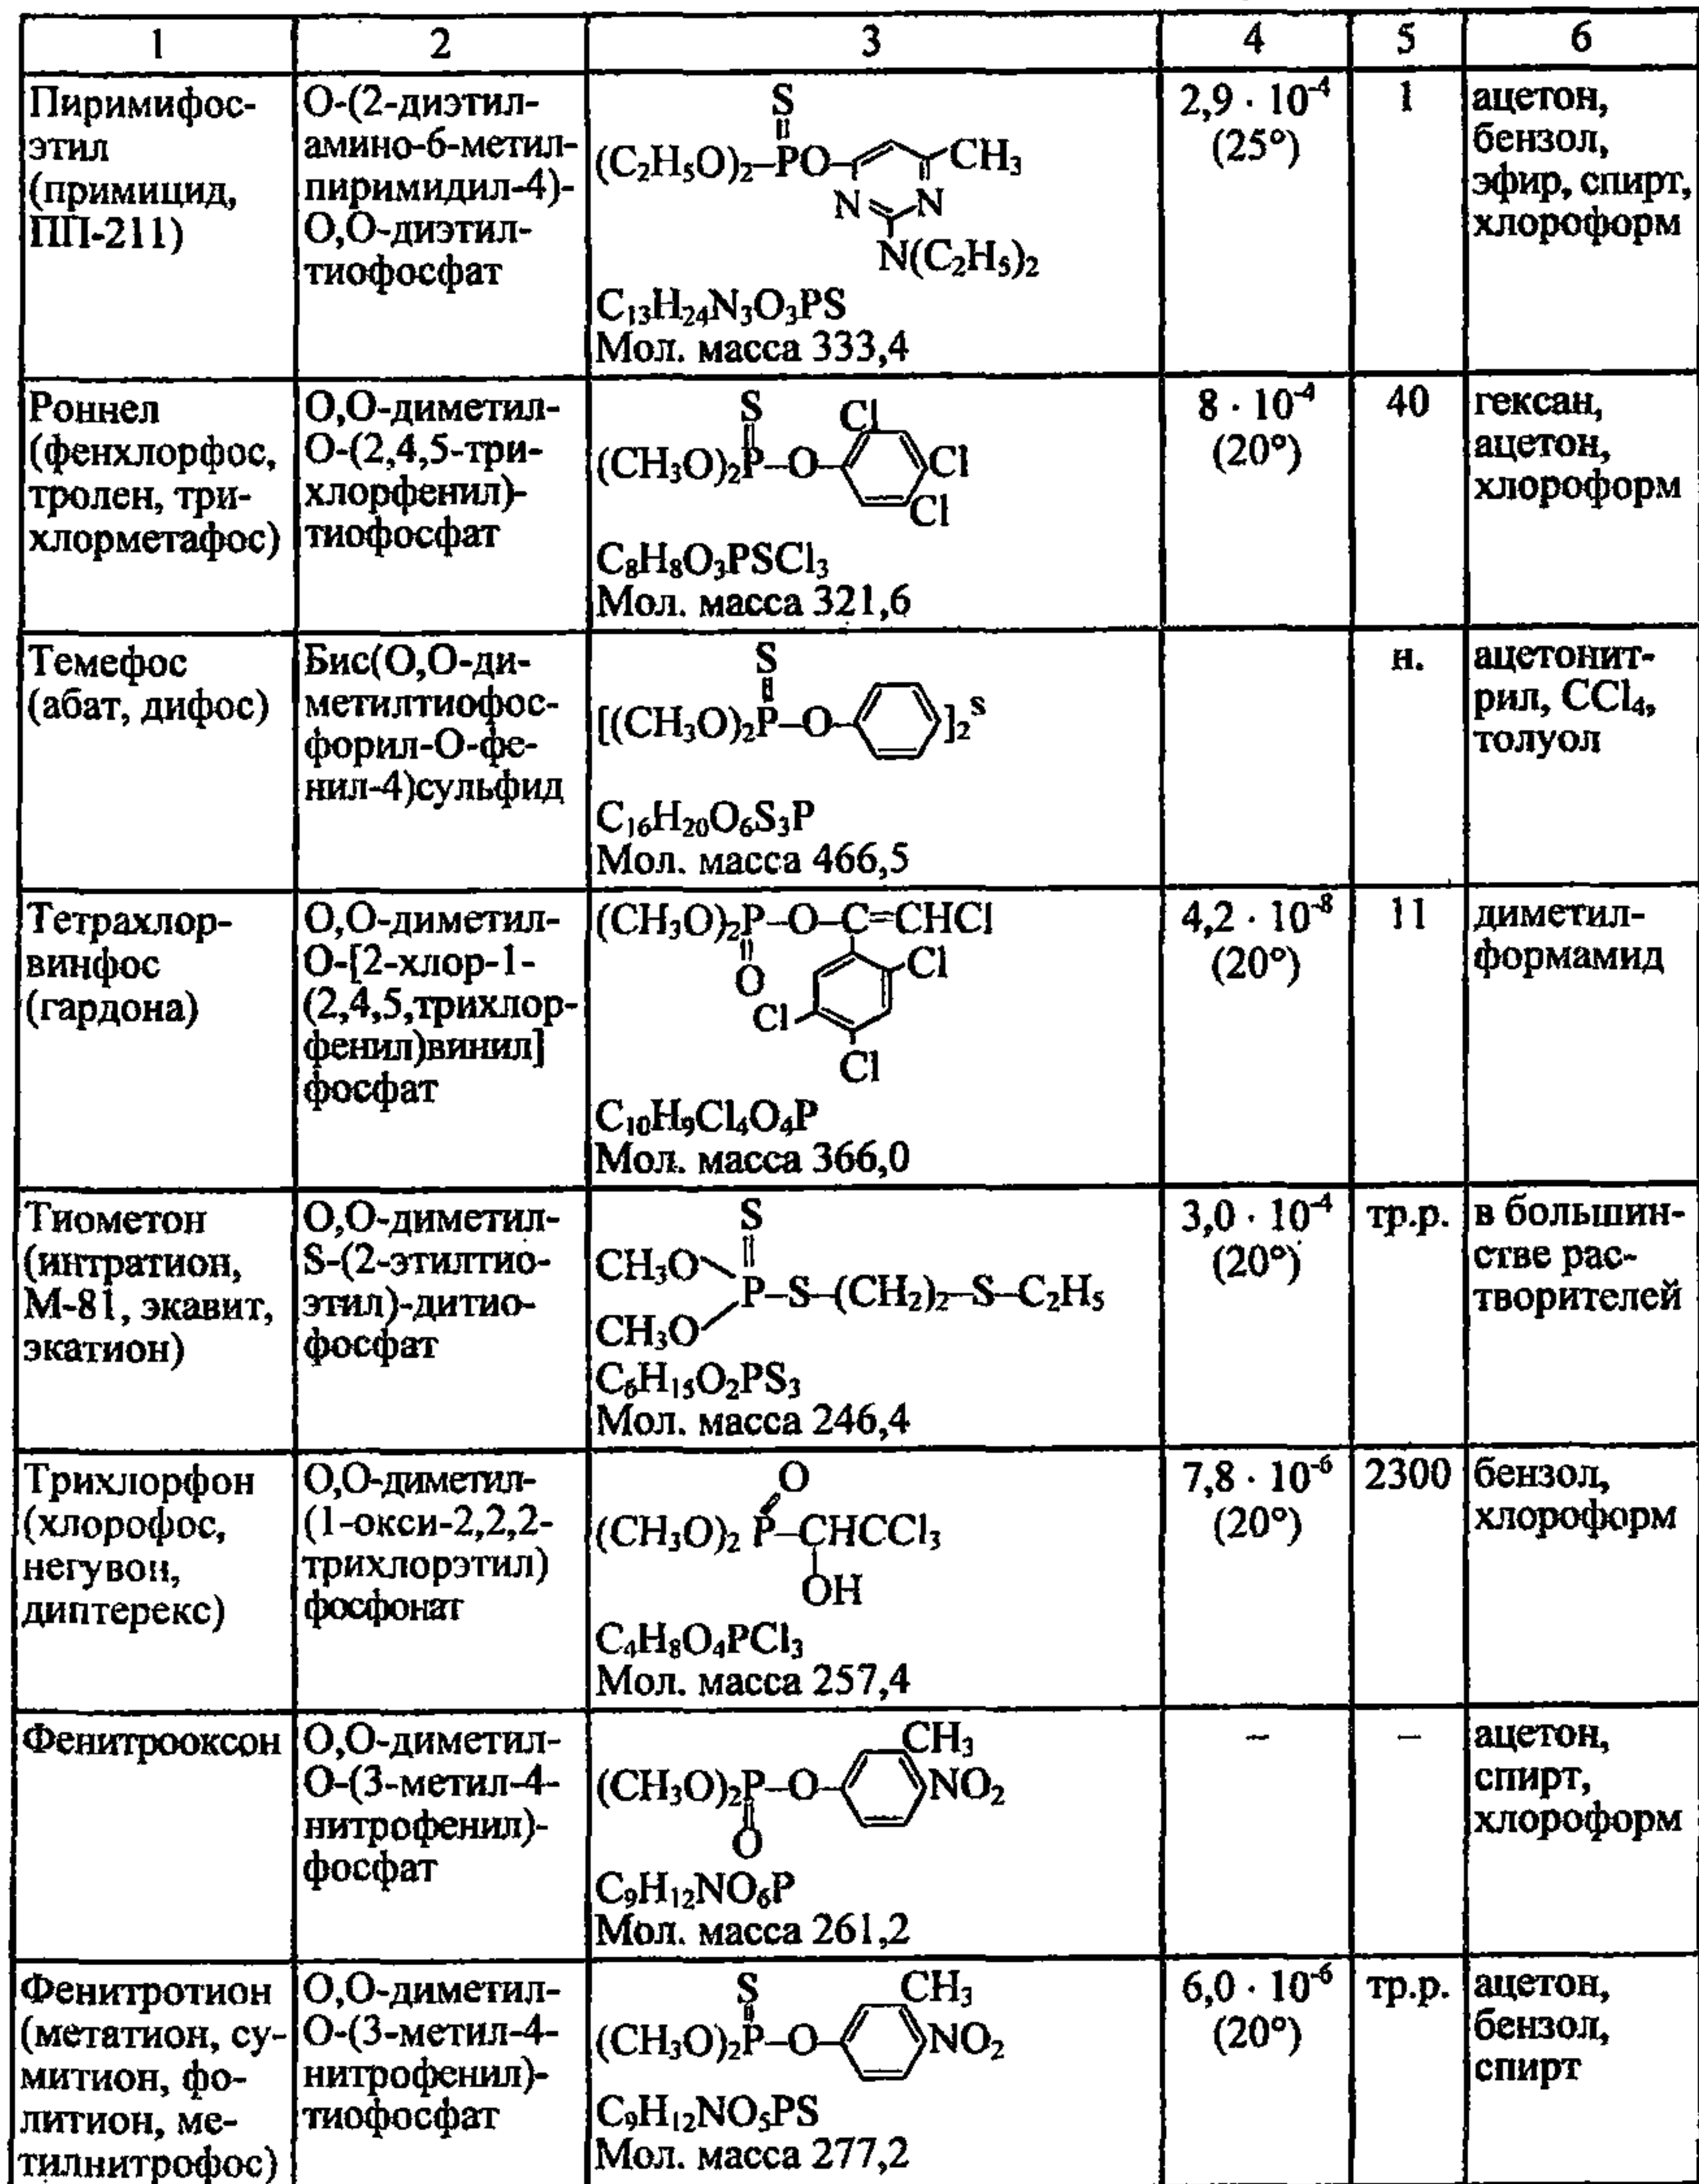 1 2 3 4 5 6
Пиримифос-
этил
(примицид,
ПП-211)
О-(2-диэтил-
амино-6-метил-
пиримидил-4)-
О,О-диэтил-
тиофосфат
S
(C₂H₅O)₂–PO CH₃
N N
N(C₂H₅)₂
C₁₃H₂₄N₃O₃PS
Мол. масса 333,4
2,9 · 10⁻⁴
(25°)
1
ацетон,
бензол,
эфир, спирт,
хлороформ
Роннел
(фенхлорфос,
тролен, три-
хлорметафос)
О,О-диметил-
О-(2,4,5-три-
хлорфенил)-
тиофосфат
S Cl
(CH₃O)₂P–O– Cl
Cl
C₈H₈O₃PSCl₃
Мол. масса 321,6
8 · 10⁻⁴
(20°)
40
гексан,
ацетон,
хлороформ
Темефос
(абат, дифос)
Бис(О,О-ди-
метилтиофос-
форил-О-фе-
нил-4)сульфид
S
[(CH₃O)₂P–O– ]₂S
C₁₆H₂₀O₆S₃P
Мол. масса 466,5
н.
ацетонит-
рил, CCl₄,
толуол
Тетрахлор-
винфос
(гардона)
О,О-диметил-
О-[2-хлор-1-
(2,4,5,трихлор-
фенил)винил]
фосфат
(CH₃O)₂P–O–C=CHCl
O Cl
Cl
Cl
C₁₀H₉Cl₄O₄P
Мол. масса 366,0
4,2 · 10⁻⁸
(20°)
11
диметил-
формамид
Тиометон
(интратион,
М-81, экавит,
экатион)
О,О-диметил-
S-(2-этилтио-
этил)-дитио-
фосфат
S
CH₃O
P–S–(CH₂)₂–S–C₂H₅
CH₃O
C₆H₁₅O₂PS₃
Мол. масса 246,4
3,0 · 10⁻⁴
(20°)
тр.р.
в большин-
стве рас-
творителей
Трихлорфон
(хлорофос,
негувон,
диптерекс)
О,О-диметил-
(1-окси-2,2,2-
трихлорэтил)
фосфонат
O
(CH₃O)₂ P–CHCCl₃
OH
C₄H₈O₄PCl₃
Мол. масса 257,4
7,8 · 10⁻⁶
(20°)
2300
бензол,
хлороформ
Фенитрооксон
О,О-диметил-
О-(3-метил-4-
нитрофенил)-
фосфат
CH₃
(CH₃O)₂P–O– NO₂
O
C₉H₁₂NO₆P
Мол. масса 261,2
–
–
ацетон,
спирт,
хлороформ
Фенитротион
(метатион, су-
митион, фо-
литион, ме-
тилнитрофос)
О,О-диметил-
О-(3-метил-4-
нитрофенил)-
тиофосфат
S CH₃
(CH₃O)₂P–O– NO₂
C₉H₁₂NO₅PS
Мол. масса 277,2
6,0 · 10⁻⁶
(20°)
тр.р.
ацетон,
бензол,
спирт